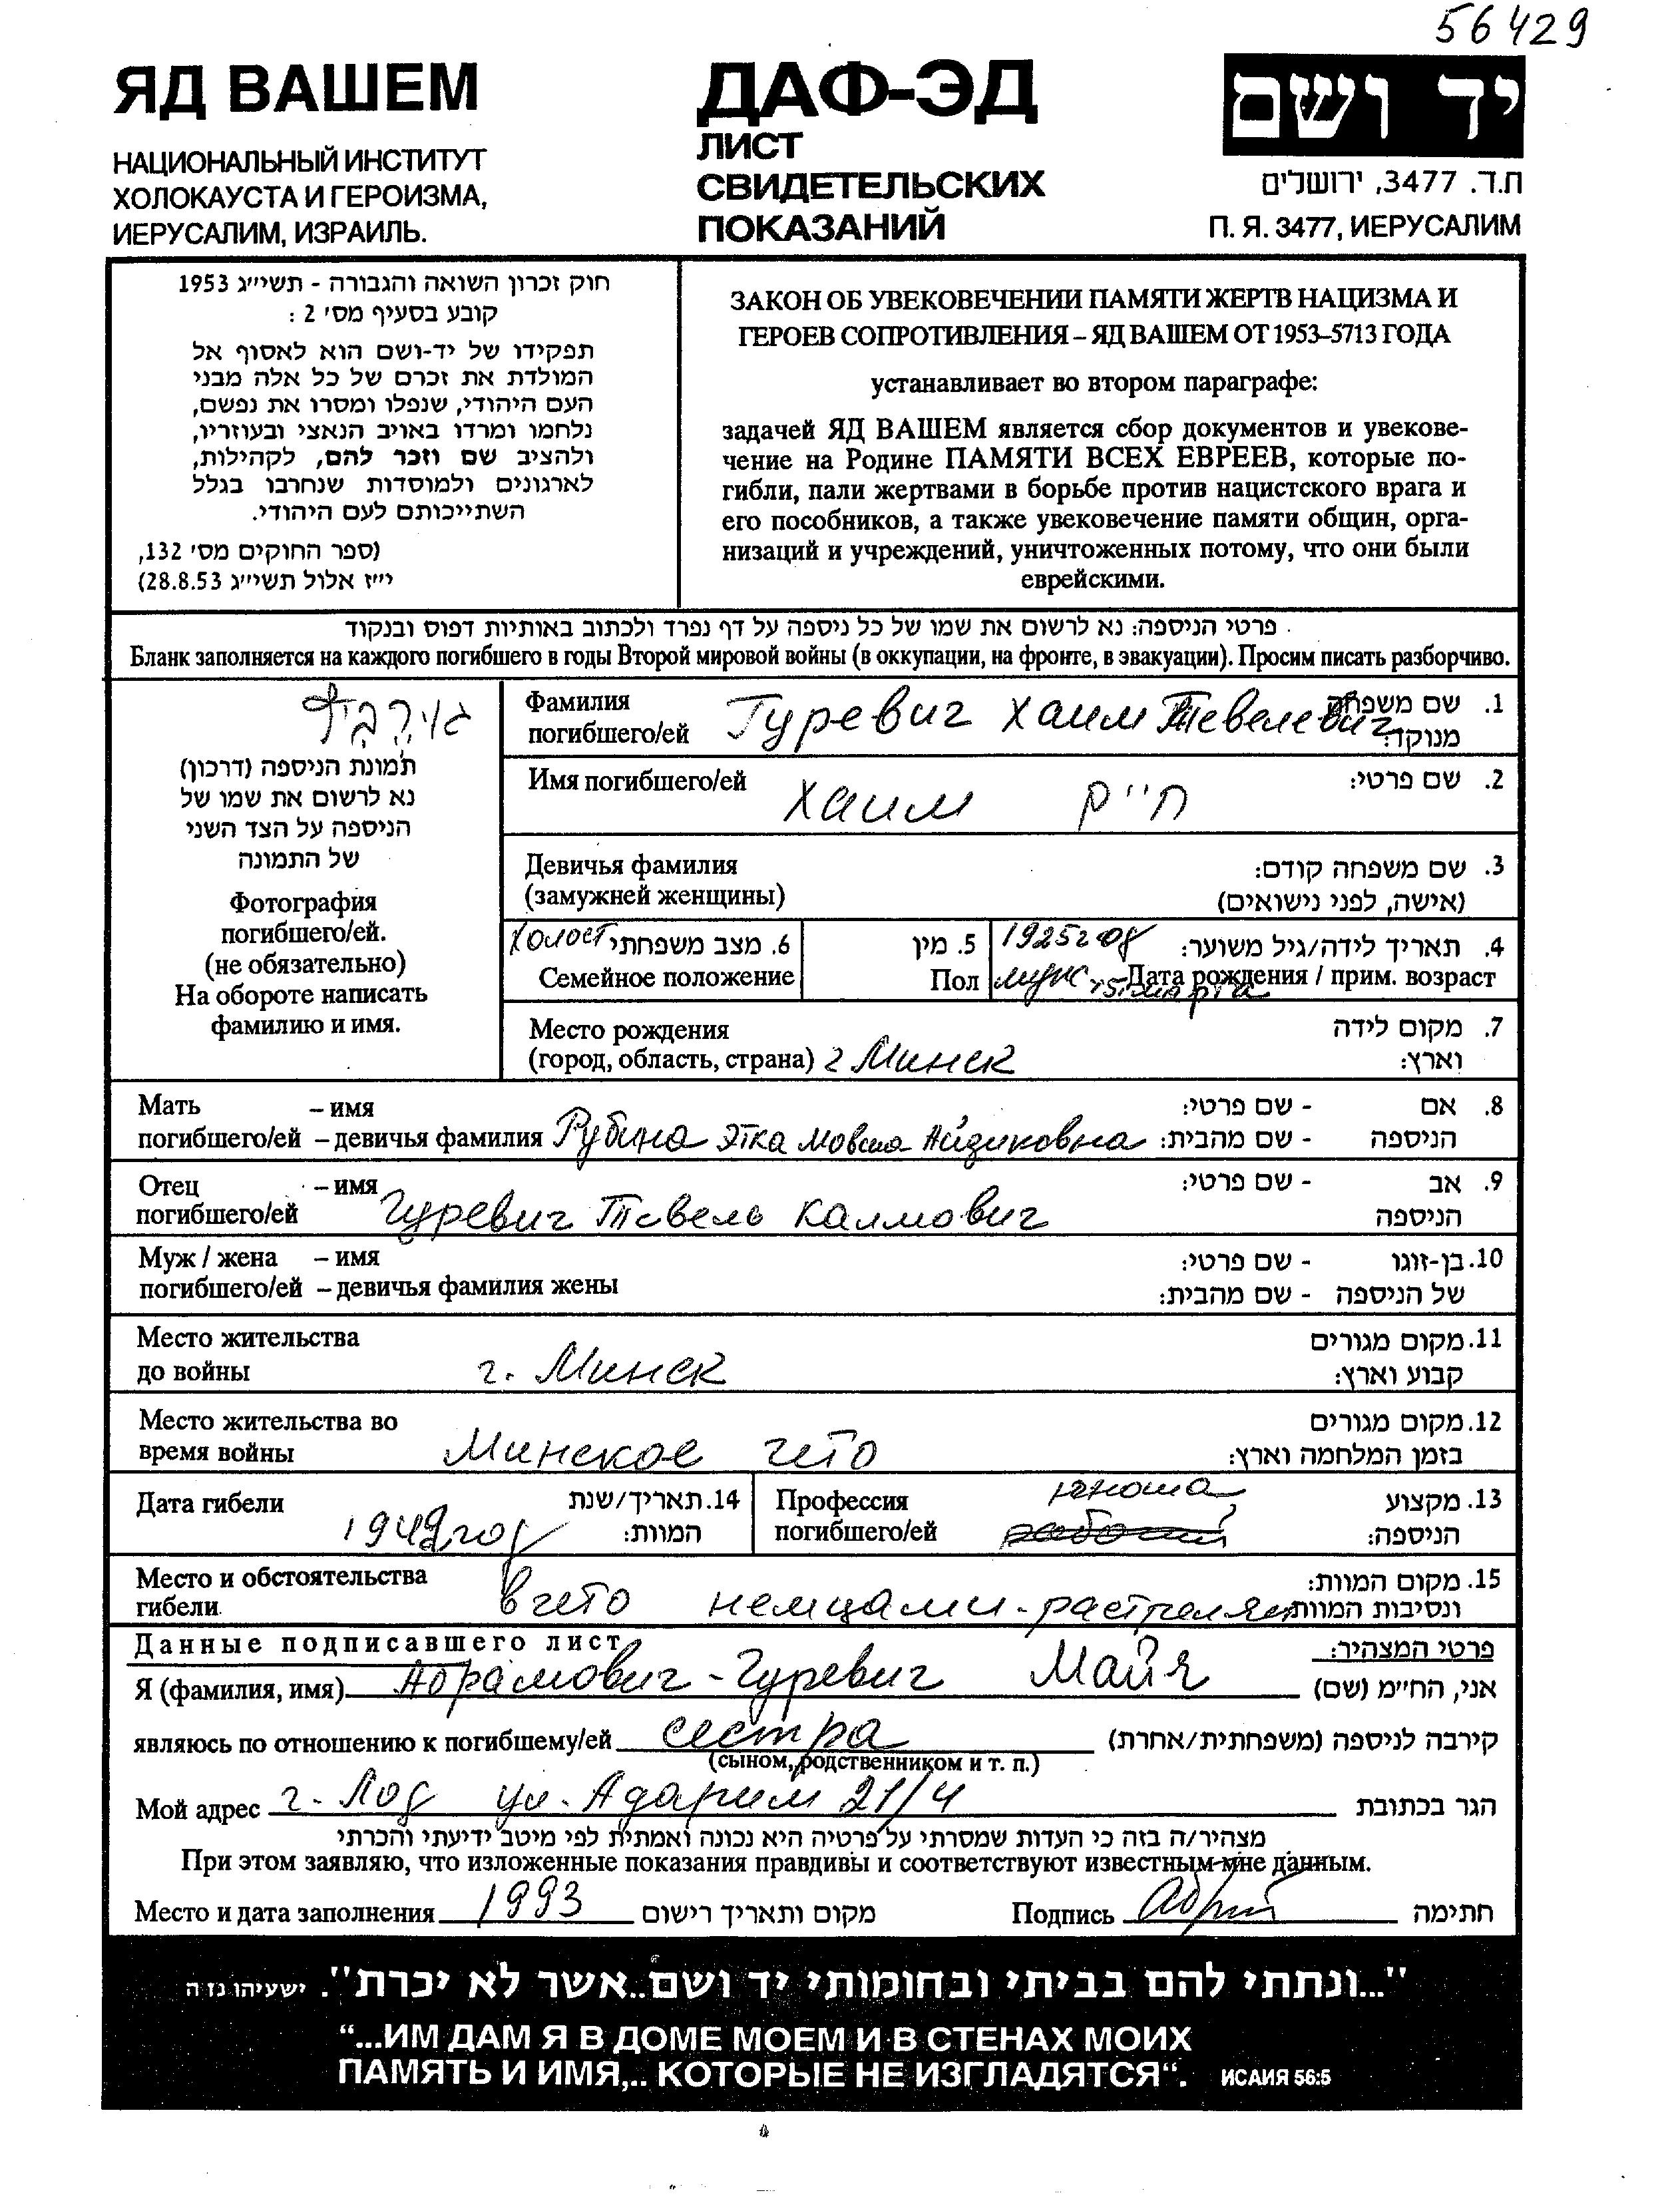 56429
ЯД ВАШЕМ
НАЦИОНАЛЬНЫЙ ИНСТИТУТ
ХОЛОКАУСТА И ГЕРОИЗМА,
ИЕРУСАЛИМ, ИЗРАИЛЬ.
ДАФ-ЭД
ЛИСТ
СВИДЕТЕЛЬСКИХ
ПОКАЗАНИЙ
יד ושם
ת.ד. 3477, ירושלים
П. Я. 3477, ИЕРУСАЛИМ
חוק זכרון השואה והגבורה - תשי״ג 1953
קובע בסעיף מס׳ 2 :
תפקידו של יד-ושם הוא לאסוף אל
המולדת את זכרם של כל אלה מבני
העם היהודי, שנפלו ומסרו את נפשם,
נלחמו ומרדו באויב הנאצי ובעוזריו,
ולהציב שם וזכר להם, לקהילות,
לארגונים ולמוסדות שנחרבו בגלל
השתייכותם לעם היהודי.
(ספר החוקים מס׳ 132,
י״ז אלול תשי״ג 28.8.53)
ЗАКОН ОБ УВЕКОВЕЧЕНИИ ПАМЯТИ ЖЕРТВ НАЦИЗМА И
ГЕРОЕВ СОПРОТИВЛЕНИЯ – ЯД ВАШЕМ ОТ 1953–5713 ГОДА
устанавливает во втором параграфе:
задачей ЯД ВАШЕМ является сбор документов и увекове-
чение на Родине ПАМЯТИ ВСЕХ ЕВРЕЕВ, которые по-
гибли, пали жертвами в борьбе против нацистского врага и
его пособников, а также увековечение памяти общин, орга-
низаций и учреждений, уничтоженных потому, что они были
еврейскими.
פרטי הניספה: נא לרשום את שמו של כל ניספה על דף נפרד ולכתוב באותיות דפוס ובנקוד
Бланк заполняется на каждого погибшего в годы Второй мировой войны (в оккупации, на фронте, в эвакуации). Просим писать разборчиво.
תמונת הניספה (דרכון)
נא לרשום את שמו של
הניספה על הצד השני
של התמונה
Фотография
погибшего/ей.
(не обязательно)
На обороте написать
фамилию и имя.
Фамилия
погибшего/ей Гуревич Хаим Тевелевич 1. שם משפחה
מנוקד:
Имя погибшего/ей Хаим חיים 2. שם פרטי:
Девичья фамилия 3. שם משפחה קודם:
(замужней женщины) (אישה, לפני נישואים)
холост 6. מצב משפחתי 5. מין 1925 год 4. תאריך לידה/גיל משוער:
Семейное положение Пол муж 15 марта Дата рождения / прим. возраст
Место рождения 7. מקום לידה
(город, область, страна) г Минск וארץ:
Мать – имя 8. אם - שם פרטי:
погибшего/ей – девичья фамилия Рубина Этка Мовша-Айзиковна הניספה - שם מהבית:
Отец – имя 9. אב - שם פרטי:
погибшего/ей Гуревич Тевель Калмович הניספה
Муж / жена – имя 10. בן-זוגו - שם פרטי:
погибшего/ей – девичья фамилия жены של הניספה - שם מהבית:
Место жительства 11. מקום מגורים
до войны г. Минск קבוע וארץ:
Место жительства во 12. מקום מגורים
время войны Минское гето בזמן המלחמה וארץ:
Дата гибели 14. תאריך/שנת Профессия юноша 13. מקצוע
1942 год המוות: погибшего/ей рабочий הניספה:
Место и обстоятельства 15. מקום המוות:
гибели. в гето немцами-растрелян ונסיבות המוות
Данные подписавшего лист פרטי המצהיר:
Я (фамилия, имя) Абрамович-Гуревич Майя אני, הח״מ (שם)
являюсь по отношению к погибшему/ей сестра קירבה לניספה (משפחתית/אחרת)
(сыном, родственником и т. п.)
Мой адрес г. Лод ул. Адарим 21/4 הגר בכתובת
מצהיר/ה בזה כי העדות שמסרתי על פרטיה היא נכונה ואמתית לפי מיטב ידיעתי והכרתי
При этом заявляю, что изложенные показания правдивы и соответствуют известным мне данным.
Место и дата заполнения 1993 מקום ותאריך רישום Подпись חתימה
"...ונתתי להם בביתי ובחומותי יד ושם..אשר לא יכרת". ישעיהו נו ה
“...ИМ ДАМ Я В ДОМЕ МОЕМ И В СТЕНАХ МОИХ
ПАМЯТЬ И ИМЯ,.. КОТОРЫЕ НЕ ИЗГЛАДЯТСЯ“. ИСАИЯ 56:5